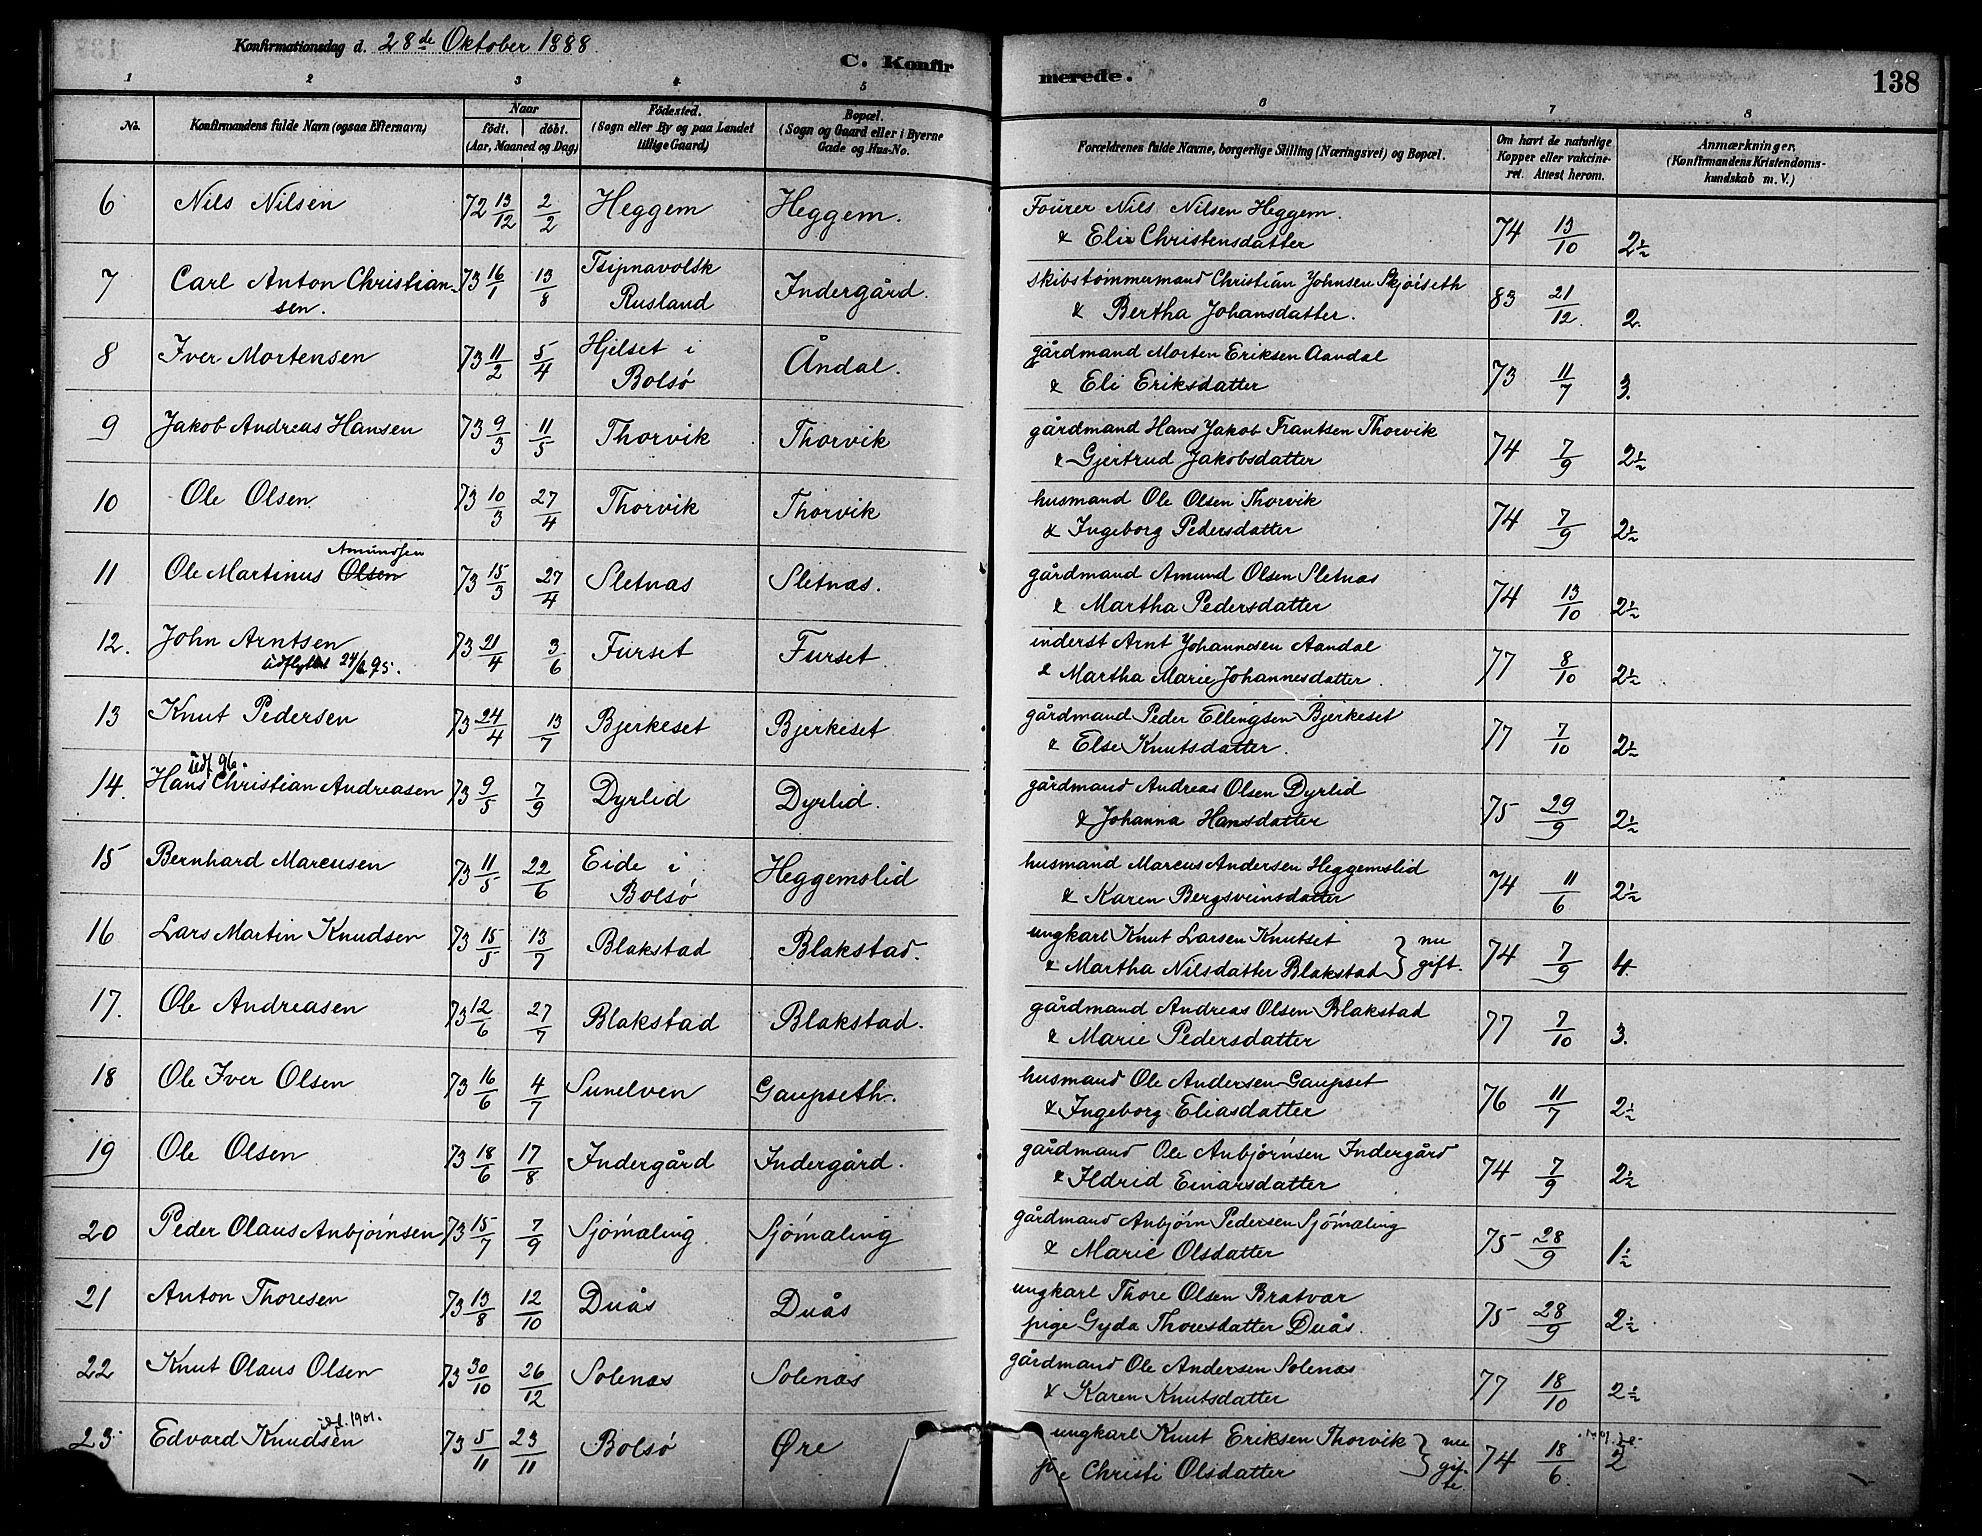 Konfirmationsdag d. 28de Oktober 1888.
C. Konfirmerede.
138
1 2 3 4 5 6 7 8
No. Konfirmandens fulde Navn (ogsaa Efternavn) Naar födt. döbt. (Aar, Maaned og Dag) Födested. (Sogn eller By og paa Landet tillige Gaard) Bopæl. (Sogn og Gaard eller i Byerne Gade og Hus-No. Forældrenes fulde Navne, borgerlige Stilling (Næringsvei) og Bopæl. Om havt de naturlige Kopper eller vakcineret. Attest herom. Anmærkninger, (Konfirmandens Kristendomskundskab m. V.)
6 Nils Nilsen 72 13/12 2/2 Heggem Heggem. Fourer Nils Nilsen Heggem. 74 13/10 2½
& Eli Christensdatter
7 Carl Anton Christian- 73 16/1 13/8 Tsipnavolsk Indergård. skibstømmermand Christian Johnsen Skjøiseth 83 21/12. 2.
sen. Rusland & Bertha Johansdatter.
8 Iver Mortensen 73 11/2 5/4 Hjelset i Åndal. gårdmand Morten Eriksen Aandal 73 11/7 3.
Bolsö & Eli Eriksdatter
9 Jakob Andreas Hansen 73 9/3 11/5 Thorvik Thorvik gårdmand Hans Jakob Frantsen Thorvik 74 7/9 2½
& Gjertrud Jakobsdatter
10 Ole Olsen. 73 10/3 27/4 Thorvik Thorvik husmand Ole Olsen Thorvik 74 7/9 2½
& Ingeborg Pedersdatter
Amundsen
11 Ole Martinus Olsen 73 15/3 27/4 Sletnæs Sletnæs. gårdmand Amund Olsen Sletnæs 74 13/10 2½
& Martha Pedersdatter
12. John Arntsen 73 21/4 3/6 Furset Furset inderst Arnt Johannesen Aandal 77 8/10 2½
udflyttet 24/6 95. & Martha Marie Johannesdatter.
13 Knut Pedersen 73 24/4 13/7 Bjerkeset Bjerkeset gårdmand Peder Ellingsen Bjerkeset 77 7/10 2½
& Else Knutsdatter.
udf 96.
14. Hans Christian Andreasen 73 9/5 7/9 Dyrlid Dyrlid. gårdmand Andreas Olsen Dyrlid 75 29/9 2½
& Johanna Hansdatter
15 Bernhard Marcusen 73 11/5 22/6 Eide i Heggemslid husmand Marcus Andersen Heggemslid 74 11/6 2½
Bolsö & Karen Bergsveinsdatter
16 Lars Martin Knudsen 73 15/5 13/7 Blakstad Blakstad. ungkarl Knut Larsen Knutset } nu 74 7/9 4
& Martha Nilsdatter Blakstad } gift.
17. Ole Andreasen 73 12/6 27/7 Blakstad Blakstad. gårdmand Andreas Olsen Blakstad 77 7/10 3.
& Marie Pedersdatter
18 Ole Iver Olsen 73 16/6 4/7 Sunelven Gaupseth. husmand Ole Andersen Gaupset 76 11/7 2½
& Ingeborg Eliasdatter
19 Ole Olsen 73 18/6 17/8 Indergård Indergård. gårdmand Ole Anbjørnsen Indergård 74 7/9 2½
& Ildrid Einarsdatter
20 Peder Olaus Anbjørnsen 73 15/7 7/9 Sjömæling. Sjömæling gårdmand Anbjørn Pedersen Sjömæling 75 28/9 1½
& Marie Olsdatter
21 Anton Thoresen 73 13/8 12/10 Duås Duås ungkarl Thore Olsen Bratvær 75 28/9 2½
pige Gyda Thoresdatter Duås.
22 Knut Olaus Olsen 73 30/10 26/12 Solenæs Solenæs gårdmand Ole Andersen Solenæs 77 18/10 2½
& Karen Knutsdatter
udf. 1901.
23 Edvard Knudsen 73 5/11 23/11 Bolsö Øre ungkarl Knut Eriksen Thorvik } nu 74 18/6. 2
Christi Olsdatter } gifte